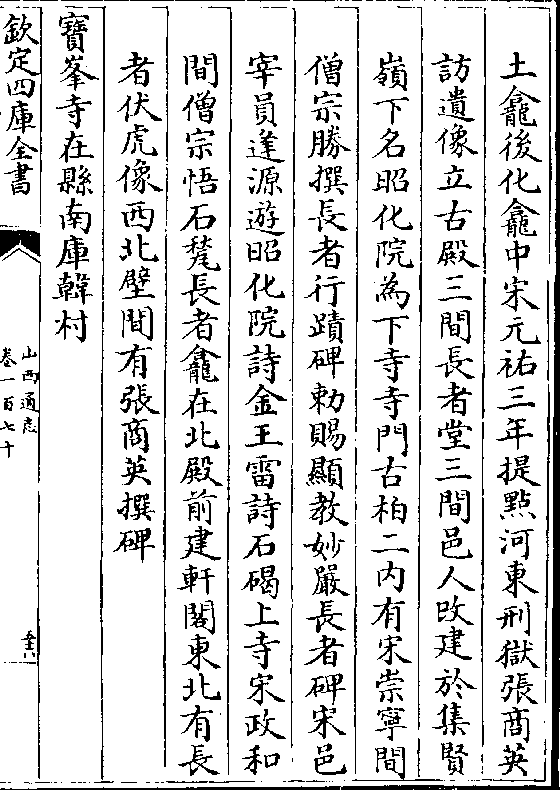 土龕後化龕中宋元祐三年提㸃河東刑獄張商英
訪遺像立古殿三間長者堂三間邑人改建於集賢
嶺下名昭化院為下寺寺門古柏二内有宋崇寧間
僧宗勝撰長者行蹟碑勅賜顯教妙嚴長者碑宋邑
宰員逢源遊昭化院詩金王雷詩石碣上寺宋政和
間僧宗悟石甃長者龕在北殿前建軒閣東北有長
者伏虎像西北壁間有張商英撰碑
寶峯寺在縣南庫韓村
欽定四庫全書
山西通志
卷一百七十